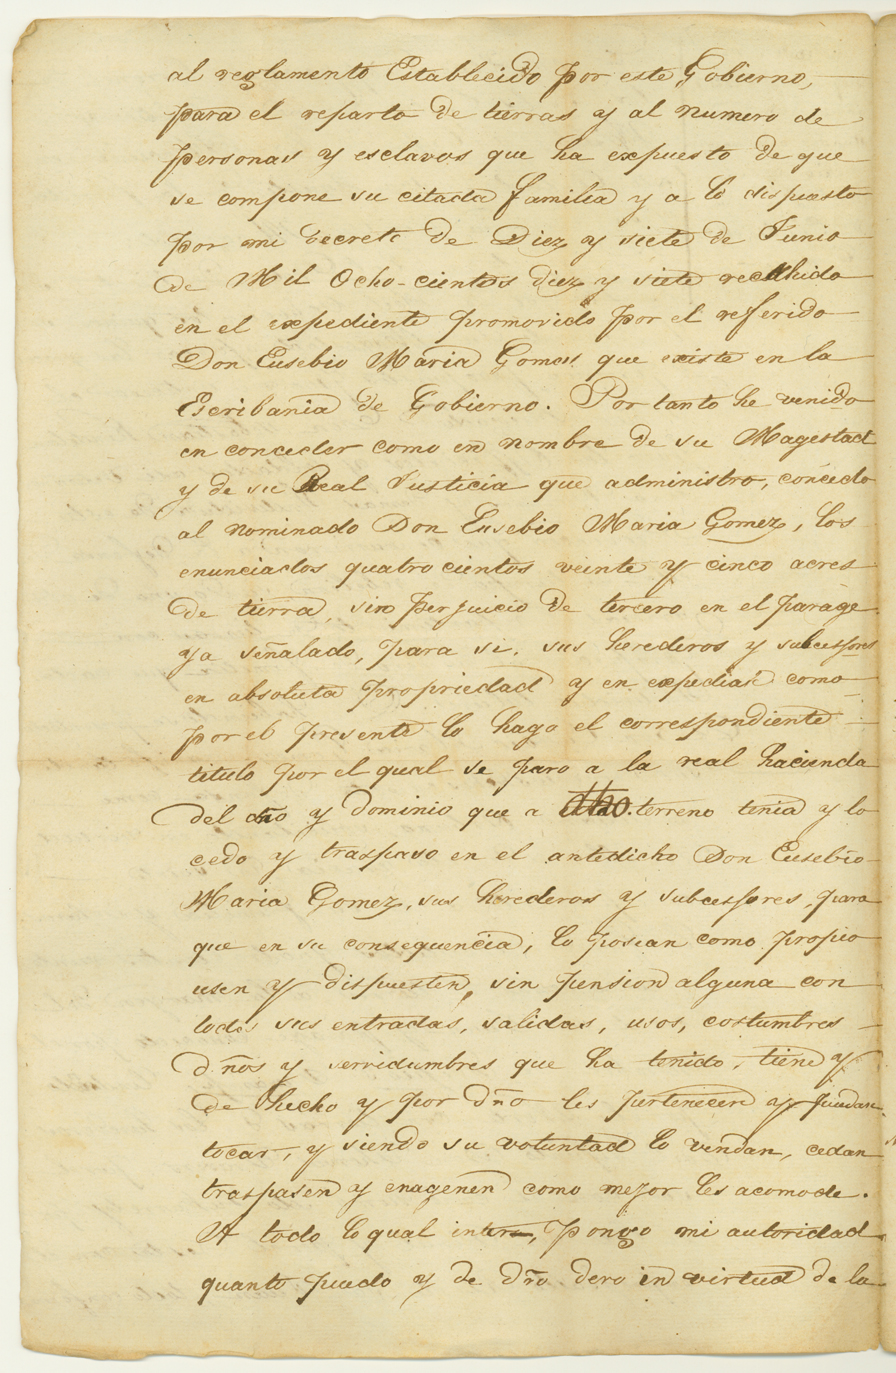 al reglamento Establecido por este Gobierno,
para el reparto de tierras y al numero de
personas y esclavos que ha expuesto de que
se compone su citada familia y a lo dispuesto
por mi Decreto de Diez y siete de Junio
de Mil Ocho-cientos diez y siete recahido
en el expediente promovido por el referido
Don Eusebio Maria Gomes que existe en la
Escribania de Gobierno. Por tanto he venido
en conceder como en nombre de su Magestad
y de su Real Justicia que administro, concedo
al nominado Don Eusebio Maria Gomez, los
enunciados quatrocientos veinte y cinco acres
de tierra, sin perjuicio de tercero en el parage
ya señalado, para si, sus herederos y subcessores
en absoluta propriedad y en expedias como
por el presente lo hago el correspondiente
titulo por el qual se paro a la real hacienda
del dño y dominio que a dho. terreno tenia y lo
cedo y traspaso en el antedicho Don Eusebio
Maria Gomez, sus herederos y subcessores, para
que en su consequencia, lo posean como propio
usen y dispuesten, sin pension alguna con
todas sus entradas, salidas, usos, costumbres
dños y servidumbres que ha tenido, tiene y
de hecho y por dño les pertenecen y puedan
tocar, y siendo su voluntad lo vendan, cedan
traspasen y enagenen como mejor les acomode.
A todo lo qual inter, pongo mi autoridad
quanto puedo y de dño dero en virtud de la